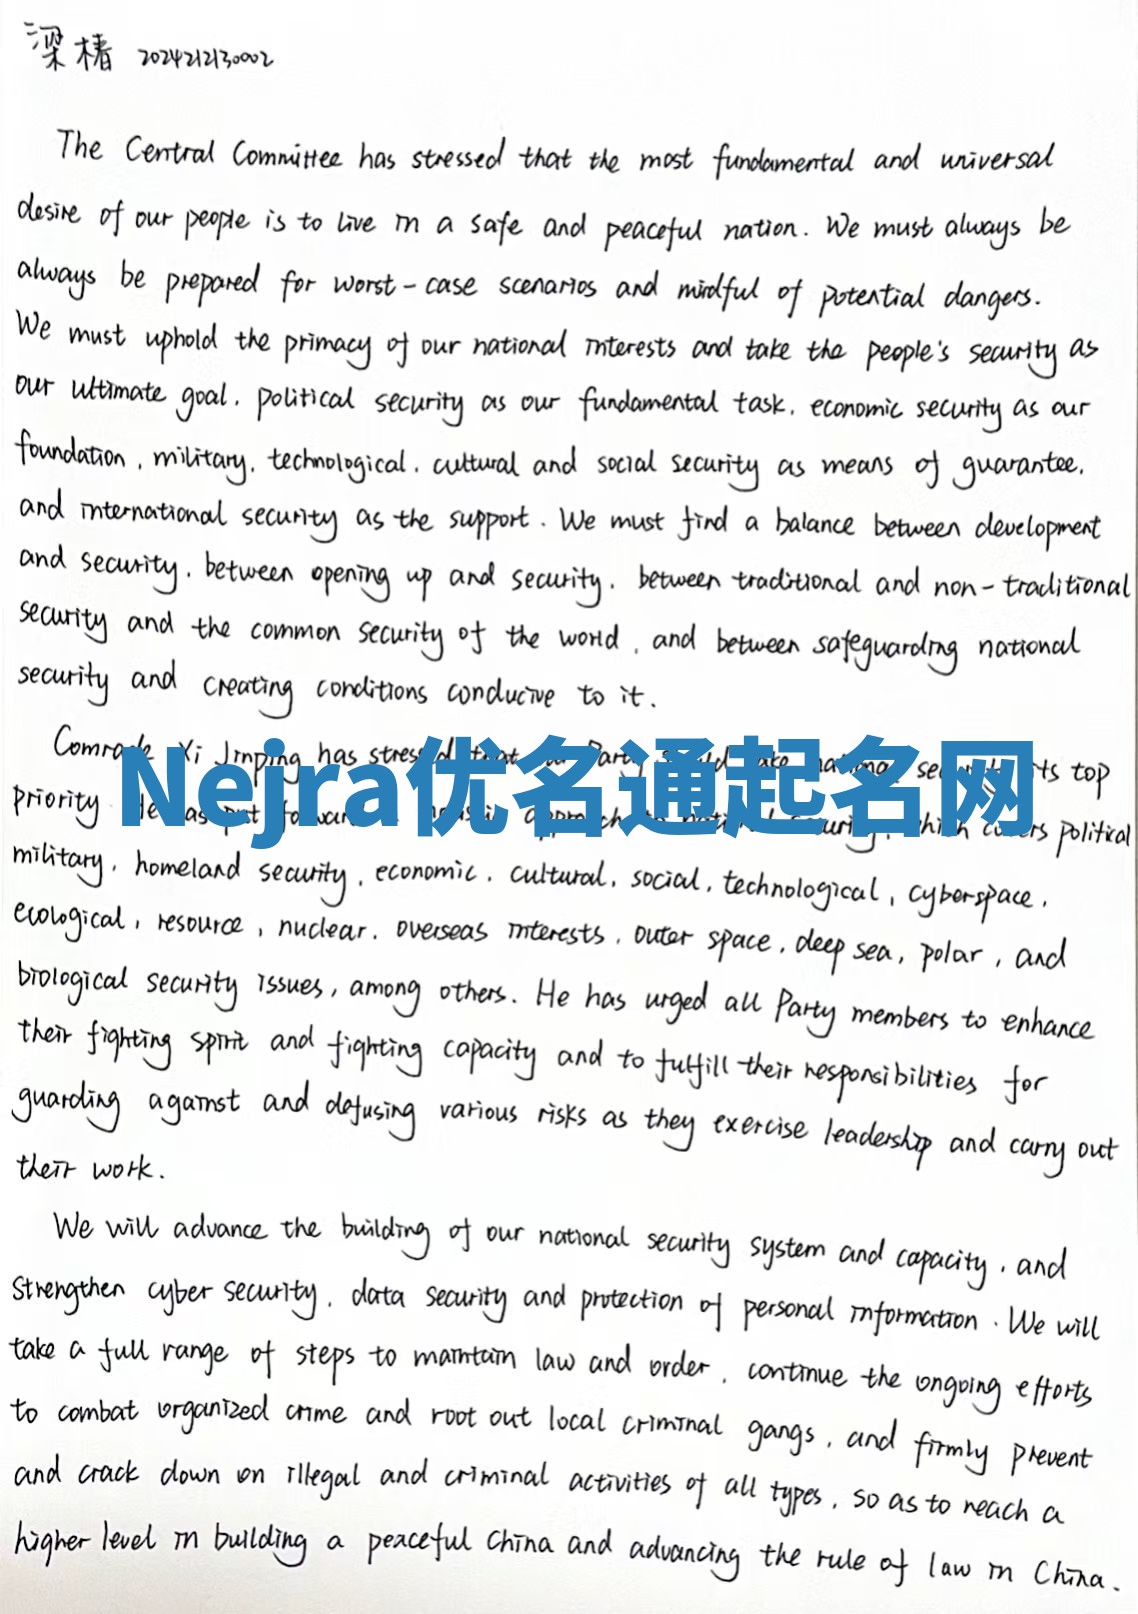 梁椿 2024212130002
The Central Committee has stressed that the most fundamental and universal
desire of our people is to live in a safe and peaceful nation. We must always be
always be prepared for worst-case scenarios and mindful of potential dangers.
We must uphold the primacy of our national interests and take the people's security as
our ultimate goal, political security as our fundamental task, economic security as our
foundation, military, technological, cultural and social security as means of guarantee,
and international security as the support. We must find a balance between development
and security, between opening up and security, between traditional and non-traditional
security and the common security of the world, and between safeguarding national
security and creating conditions conducive to it.
Comrade Xi Jinping has stressed that Party national its top
Nejra优名通起名网
priority which covers political
military, homeland security, economic, cultural, social, technological, cyberspace,
ecological, resource, nuclear, overseas interests, outer space, deep sea, polar, and
biological security issues, among others. He has urged all Party members to enhance
their fighting spirit and fighting capacity and to fulfill their responsibilities for
guarding against and defusing various risks as they exercise leadership and carry out
their work.
We will advance the building of our national security system and capacity, and
strengthen cyber security, data security and protection of personal information. We will
take a full range of steps to maintain law and order, continue the ongoing efforts
to combat organized crime and root out local criminal gangs, and firmly prevent
and crack down on illegal and criminal activities of all types, so as to reach a
higher level in building a peaceful China and advancing the rule of law in China.